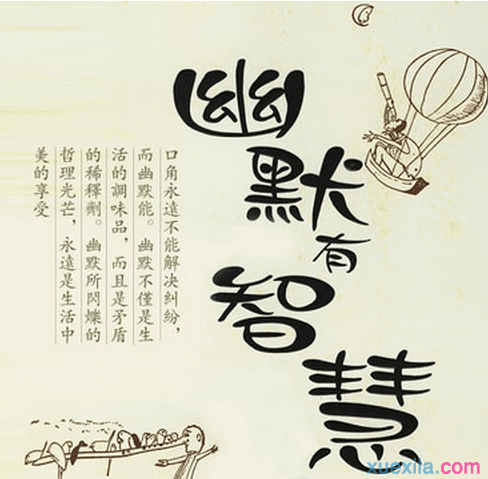 幽默有智慧
口角永遠不能解決糾紛，
而幽默能。幽默不僅是生
活的調味品，而且是矛盾
的稀釋劑。幽默所閃爍的
哲理光芒，永遠是生活中
美的享受
xuexila.com